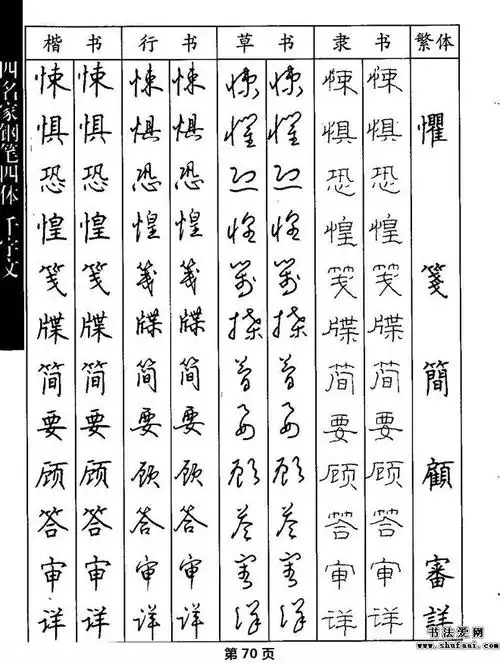 楷 书 行 书 草 书 隶 书 繁体
四名家钢笔四体 千字文
悚 悚 悚 悚 悚 悚 悚 悚
惧 惧 惧 惧 惧 惧 惧 惧 懼
恐 恐 恐 恐 恐 恐 恐 恐
惶 惶 惶 惶 惶 惶 惶 惶
笺 笺 笺 笺 笺 笺 笺 笺 箋
牒 牒 牒 牒 牒 牒 牒 牒
简 简 简 简 简 简 简 简 簡
要 要 要 要 要 要 要 要
顾 顾 顾 顾 顾 顾 顾 顾 顧
答 答 答 答 答 答 答 答
审 审 审 审 审 审 审 审 審
详 详 详 详 详 详 详 详 詳
书法爱网
www.shufaai.com
第 70 页